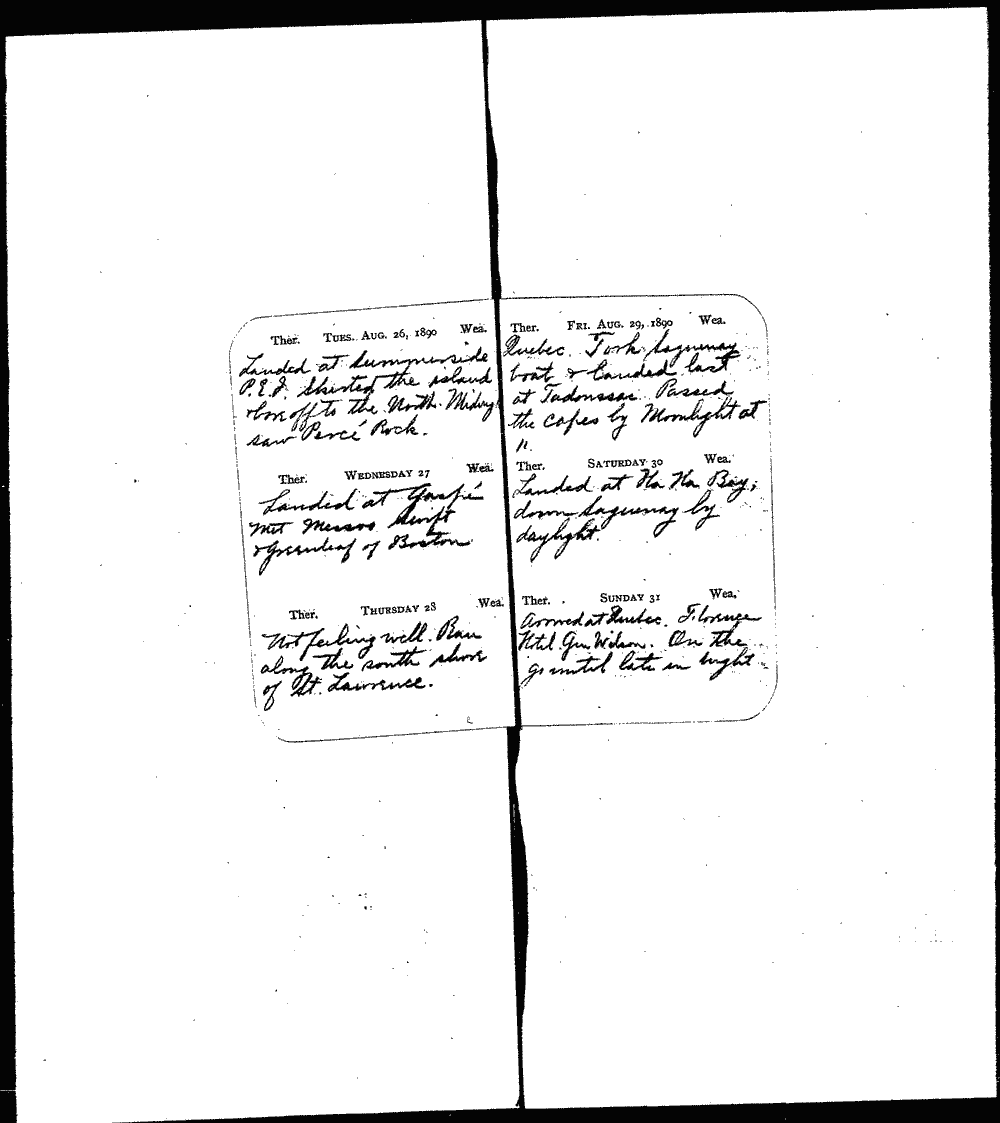 Ther. TUES. AUG. 26, 1890 Wea.
Landed at Summerside
P.E.I. Skirted the island
& bore off to the North. Midway
saw Percé Rock.
Ther. WEDNESDAY 27 Wea.
Landed at Gaspé
Met Messrs Swift
& Greenleaf of Boston
Ther. THURSDAY 28 Wea.
Not feeling well. Ran
along the south shore
of St. Lawrence.
Ther. FRI. AUG. 29, 1890 Wea.
Quebec. Took Saguenay
boat & landed last
at Tadoussac. Passed
the capes by Moonlight at
11.
Ther. SATURDAY 30 Wea.
Landed at Ha Ha Bay;
down Saguenay by
daylight.
Ther. SUNDAY 31 Wea.
Arrived at Quebec. Florence
Hotel. Gen Wilson. On the
go until late in night